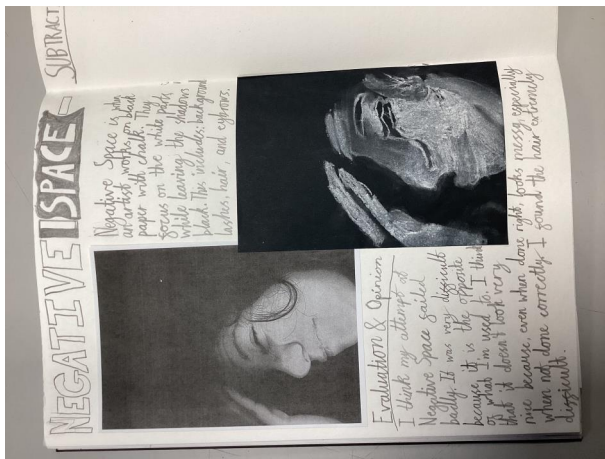 NEGATIVE SPACE - SUBTRACT
Negative Space is when
an artist works on black
paper with chalk. They
focus on the white parts
while leaving the shadows
black. This includes: background
lashes, hair, and eyebrows.
Evaluation & Opinion
I think my attempt at
Negative Space failed
badly. It was very difficult
because it is the opposite
of what I'm used to. I think
that it doesn't look very
nice because, even when done right, looks messy, especially
when not done correctly. I found the hair extremely
difficult.